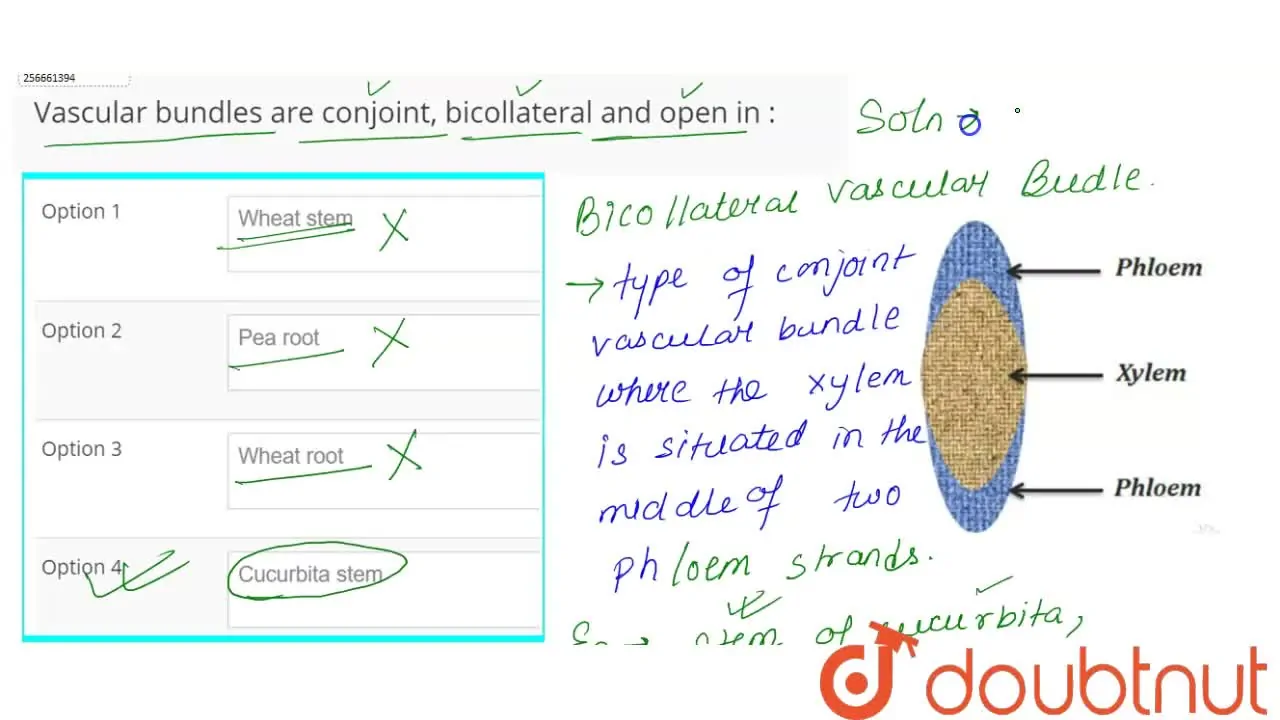 256661394
Vascular bundles are conjoint, bicollateral and open in :
Option 1
Wheat stem
Option 2
Pea root
Option 3
Wheat root
Option 4
Cucurbita stem
Soln
Bicollateral vascular Budle.
→ type of conjoint
vascular bundle
where the xylem
is situated in the
middle of two
phloem strands.
stem of cucurbita,
Phloem
Xylem
Phloem
doubtnut